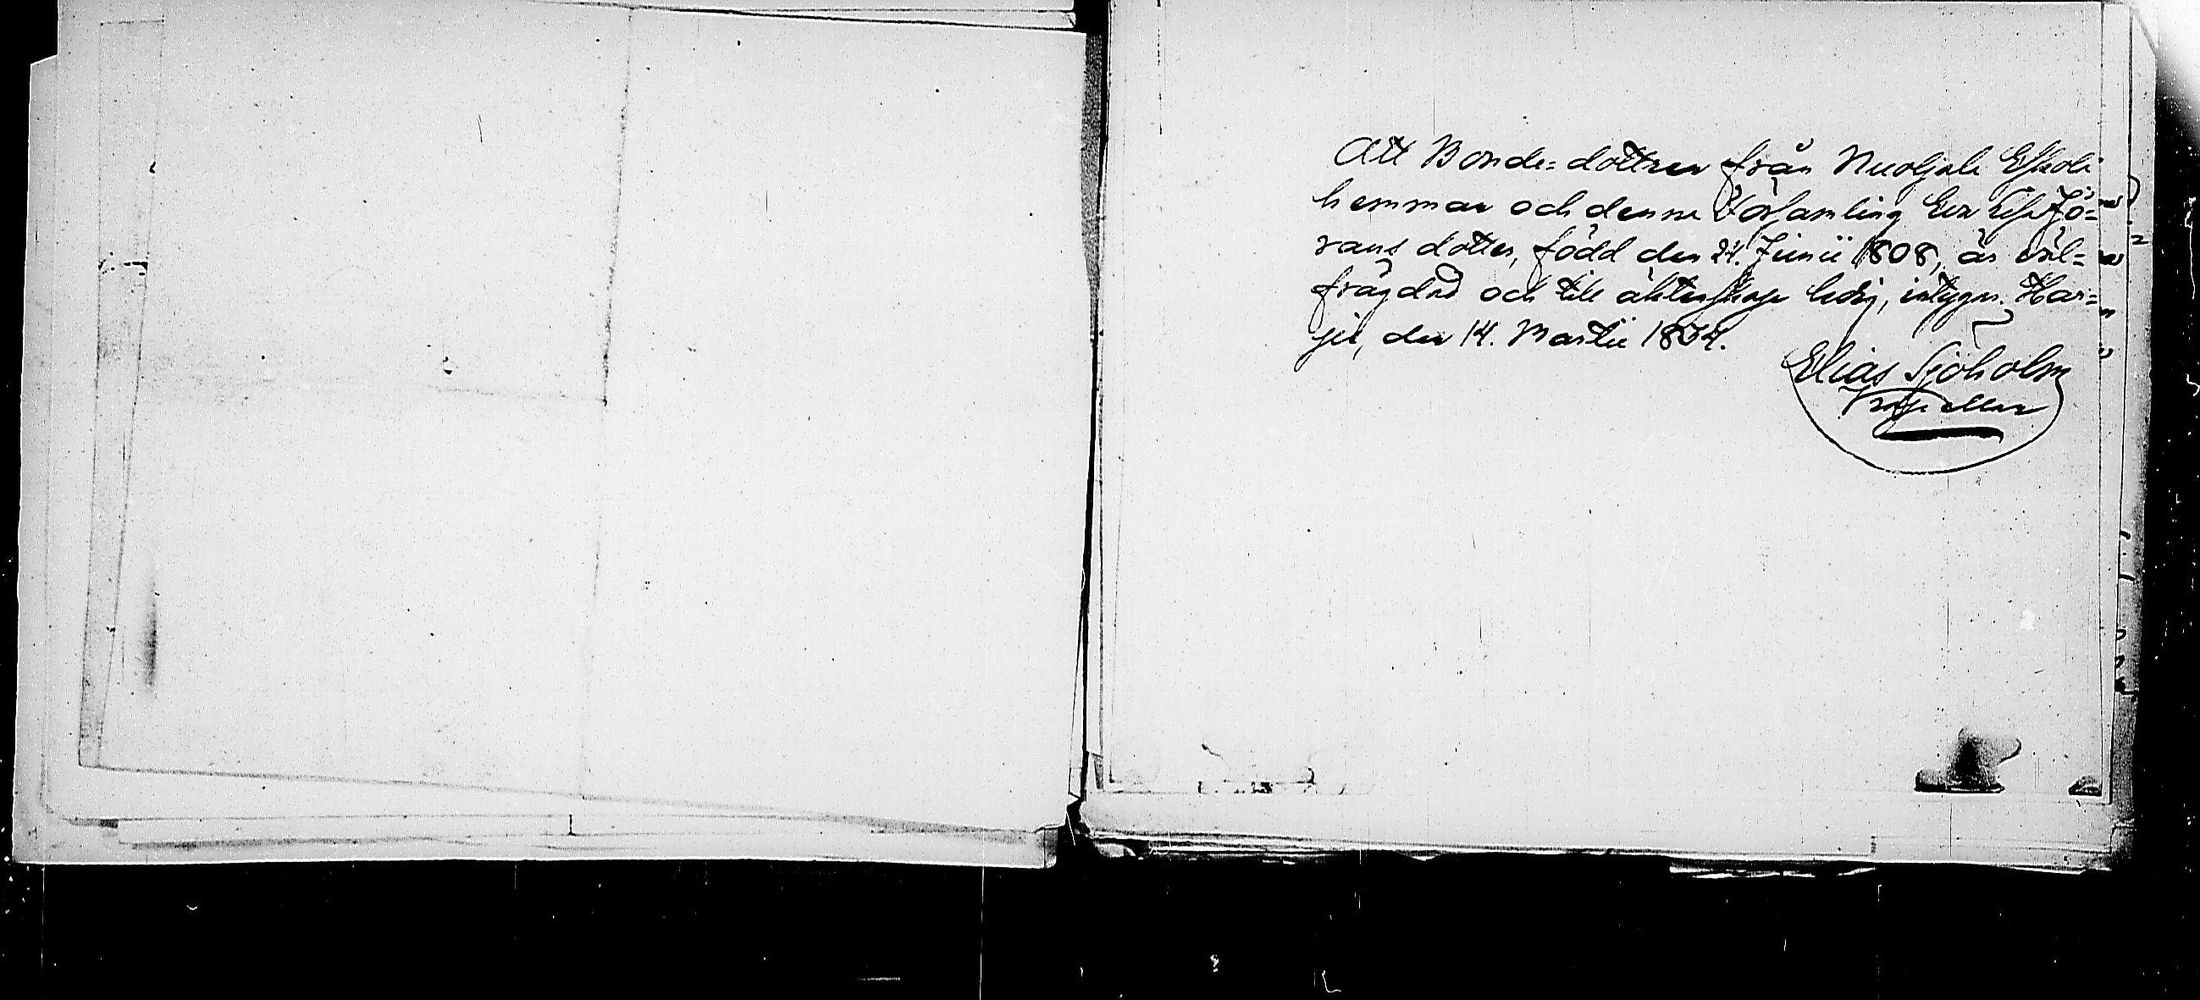 Att Bonde-dottren från Nuoljala Eskola
hemman och denne Församling Eva Lisa Jö=
rans dotter, född den 24. Junii 1808, är väl=
frägdad och till äktenskap ledig, intygar. Har=
jis, den 14. Martii 1834.
Elias Sjöholm
Kapellan